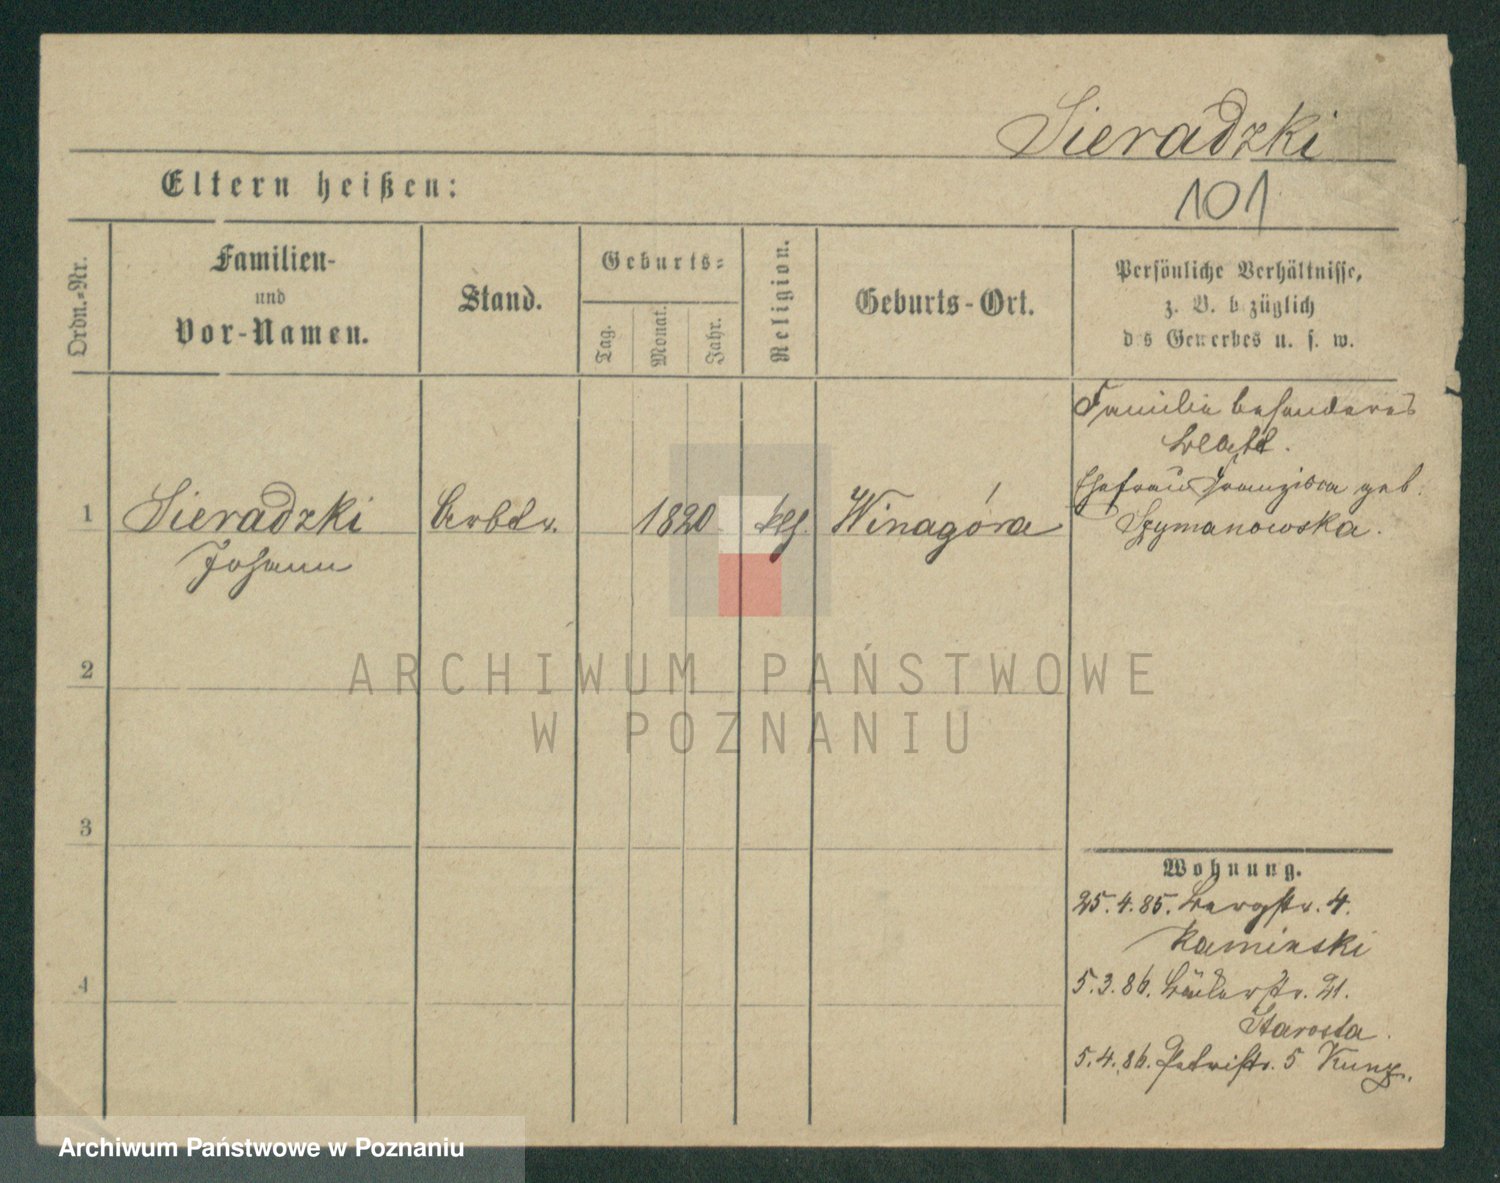 Sieradzki
101
Eltern heißen:
Ordn.-Nr.
Familien-
und
Vor-Namen.
Stand.
Geburts-
Tag.
Monat.
Jahr.
Religion.
Geburts-Ort.
Persönliche Verhältnisse,
z. B. bezüglich
des Gewerbes u. s. w.
Familie besonderes
Blatt.
Ehefrau Franzisca geb.
Szymanowska.
1 Sieradzki Arbtr. 1820 kth Winagóra
Johann
2
ARCHIWUM PAŃSTWOWE
W POZNANIU
3
Wohnung.
25.4.85. Bergstr. 4.
Kaminski
4
5.3.86. Bäckerstr. 21.
Starosta.
5.4.86. Petristr. 5 Kunz.
Archiwum Państwowe w Poznaniu